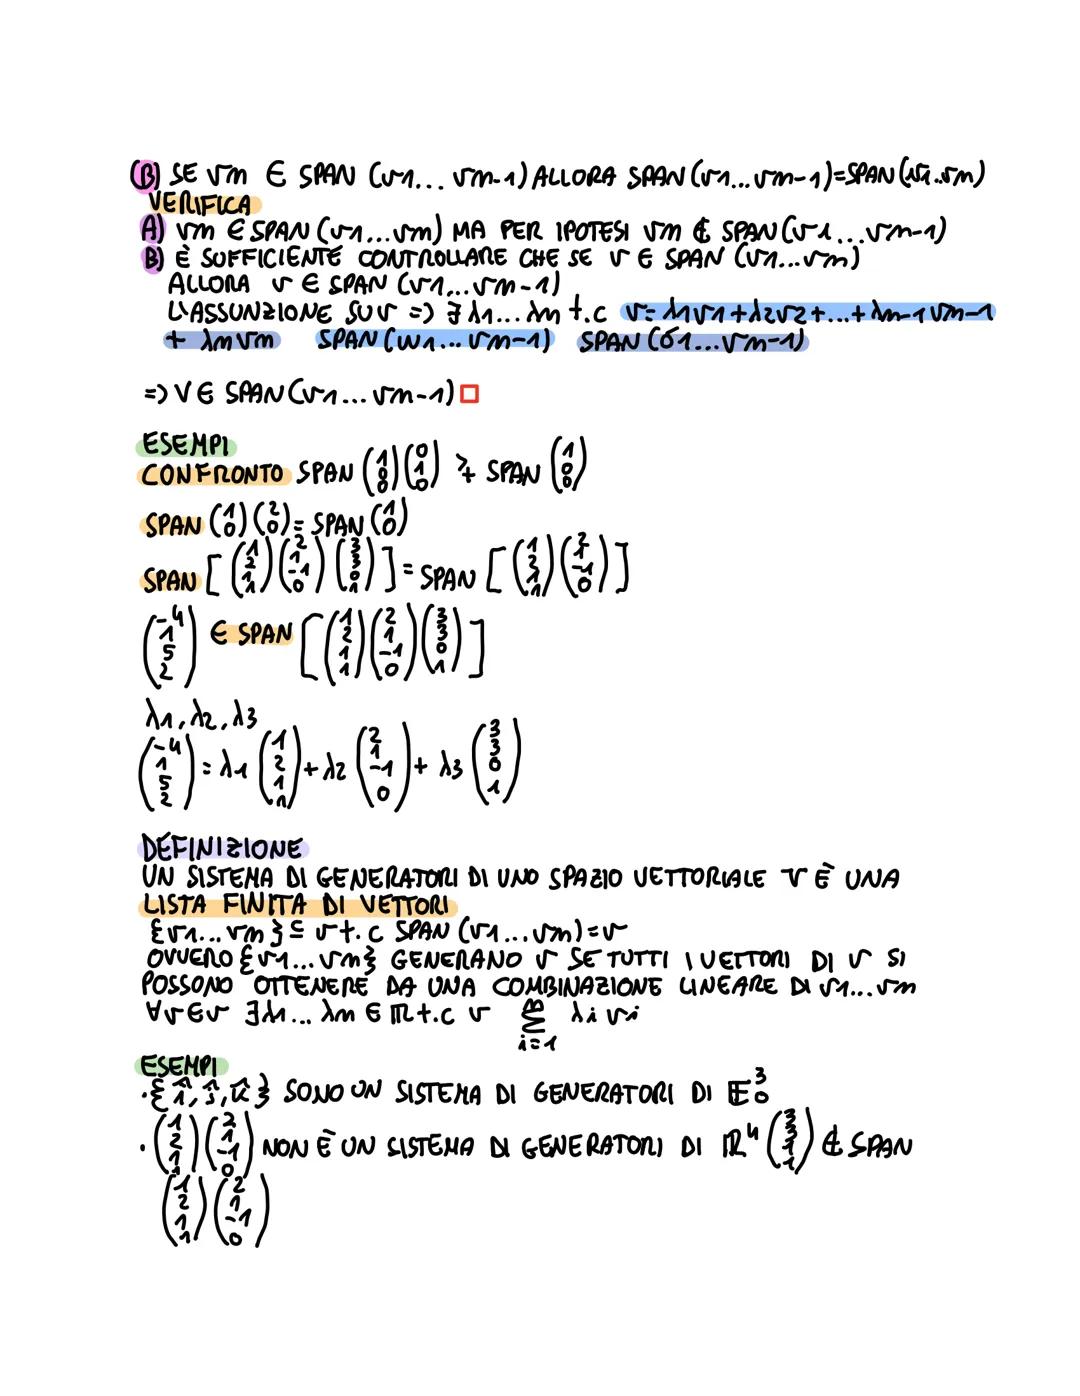 (B) SE vm ∈ SPAN (v1... vm-1) ALLORA SPAN (v1...vm-1)=SPAN (v1..vm)
VERIFICA
A) vm ∈ SPAN (v1...vm) MA PER IPOTESI vm ∉ SPAN (v1...vm-1)
B) È SUFFICIENTE CONTROLLARE CHE SE v ∈ SPAN (v1...vm)
ALLORA v ∈ SPAN (v1...vm-1)
L'ASSUNZIONE SU v => ∃ λ1... λm t.c v= λ1v1+λ2v2+...+λm-1vm-1
+ λmvm SPAN (w1...vm-1) SPAN (σ1...vm-1)
=> V ∈ SPAN (v1... vm-1) □
ESEMPI
CONFRONTO SPAN (1 0 0) (0 1 0) ⊋ SPAN (1 0 0)
SPAN (1 0) (2 0) = SPAN (1 0)
SPAN [ (1 2 1 1) (2 1 -1 0) (3 3 0 1) ] = SPAN [ (1 2 1 1) (2 1 -1 0) ]
(-4 1 5 2) ∈ SPAN [ (1 2 1 1) (2 1 -1 0) (3 3 0 1) ]
λ1, λ2, λ3
(-4 1 5 2) = λ1 (1 2 1 1) + λ2 (2 1 -1 0) + λ3 (3 3 0 1)
DEFINIZIONE
UN SISTEMA DI GENERATORI DI UNO SPAZIO VETTORIALE V È UNA
LISTA FINITA DI VETTORI
{v1... vm} ⊆ v t.c SPAN (v1...vm)=v
OVVERO {v1...vm} GENERANO v SE TUTTI I VETTORI DI v SI
POSSONO OTTENERE DA UNA COMBINAZIONE LINEARE DI v1...vm
∀v∈v ∃λ1... λm ∈ ℝ t.c v m∑i=1 λi vi
ESEMPI
·{î, ĵ, k̂} SONO UN SISTEMA DI GENERATORI DI E³0
· (1 2 1 1) (2 1 -1 0) NON È UN SISTEMA DI GENERATORI DI ℝ⁴ (3 3 1 1) ∉ SPAN
(1 2 1 1) (2 1 -1 0)